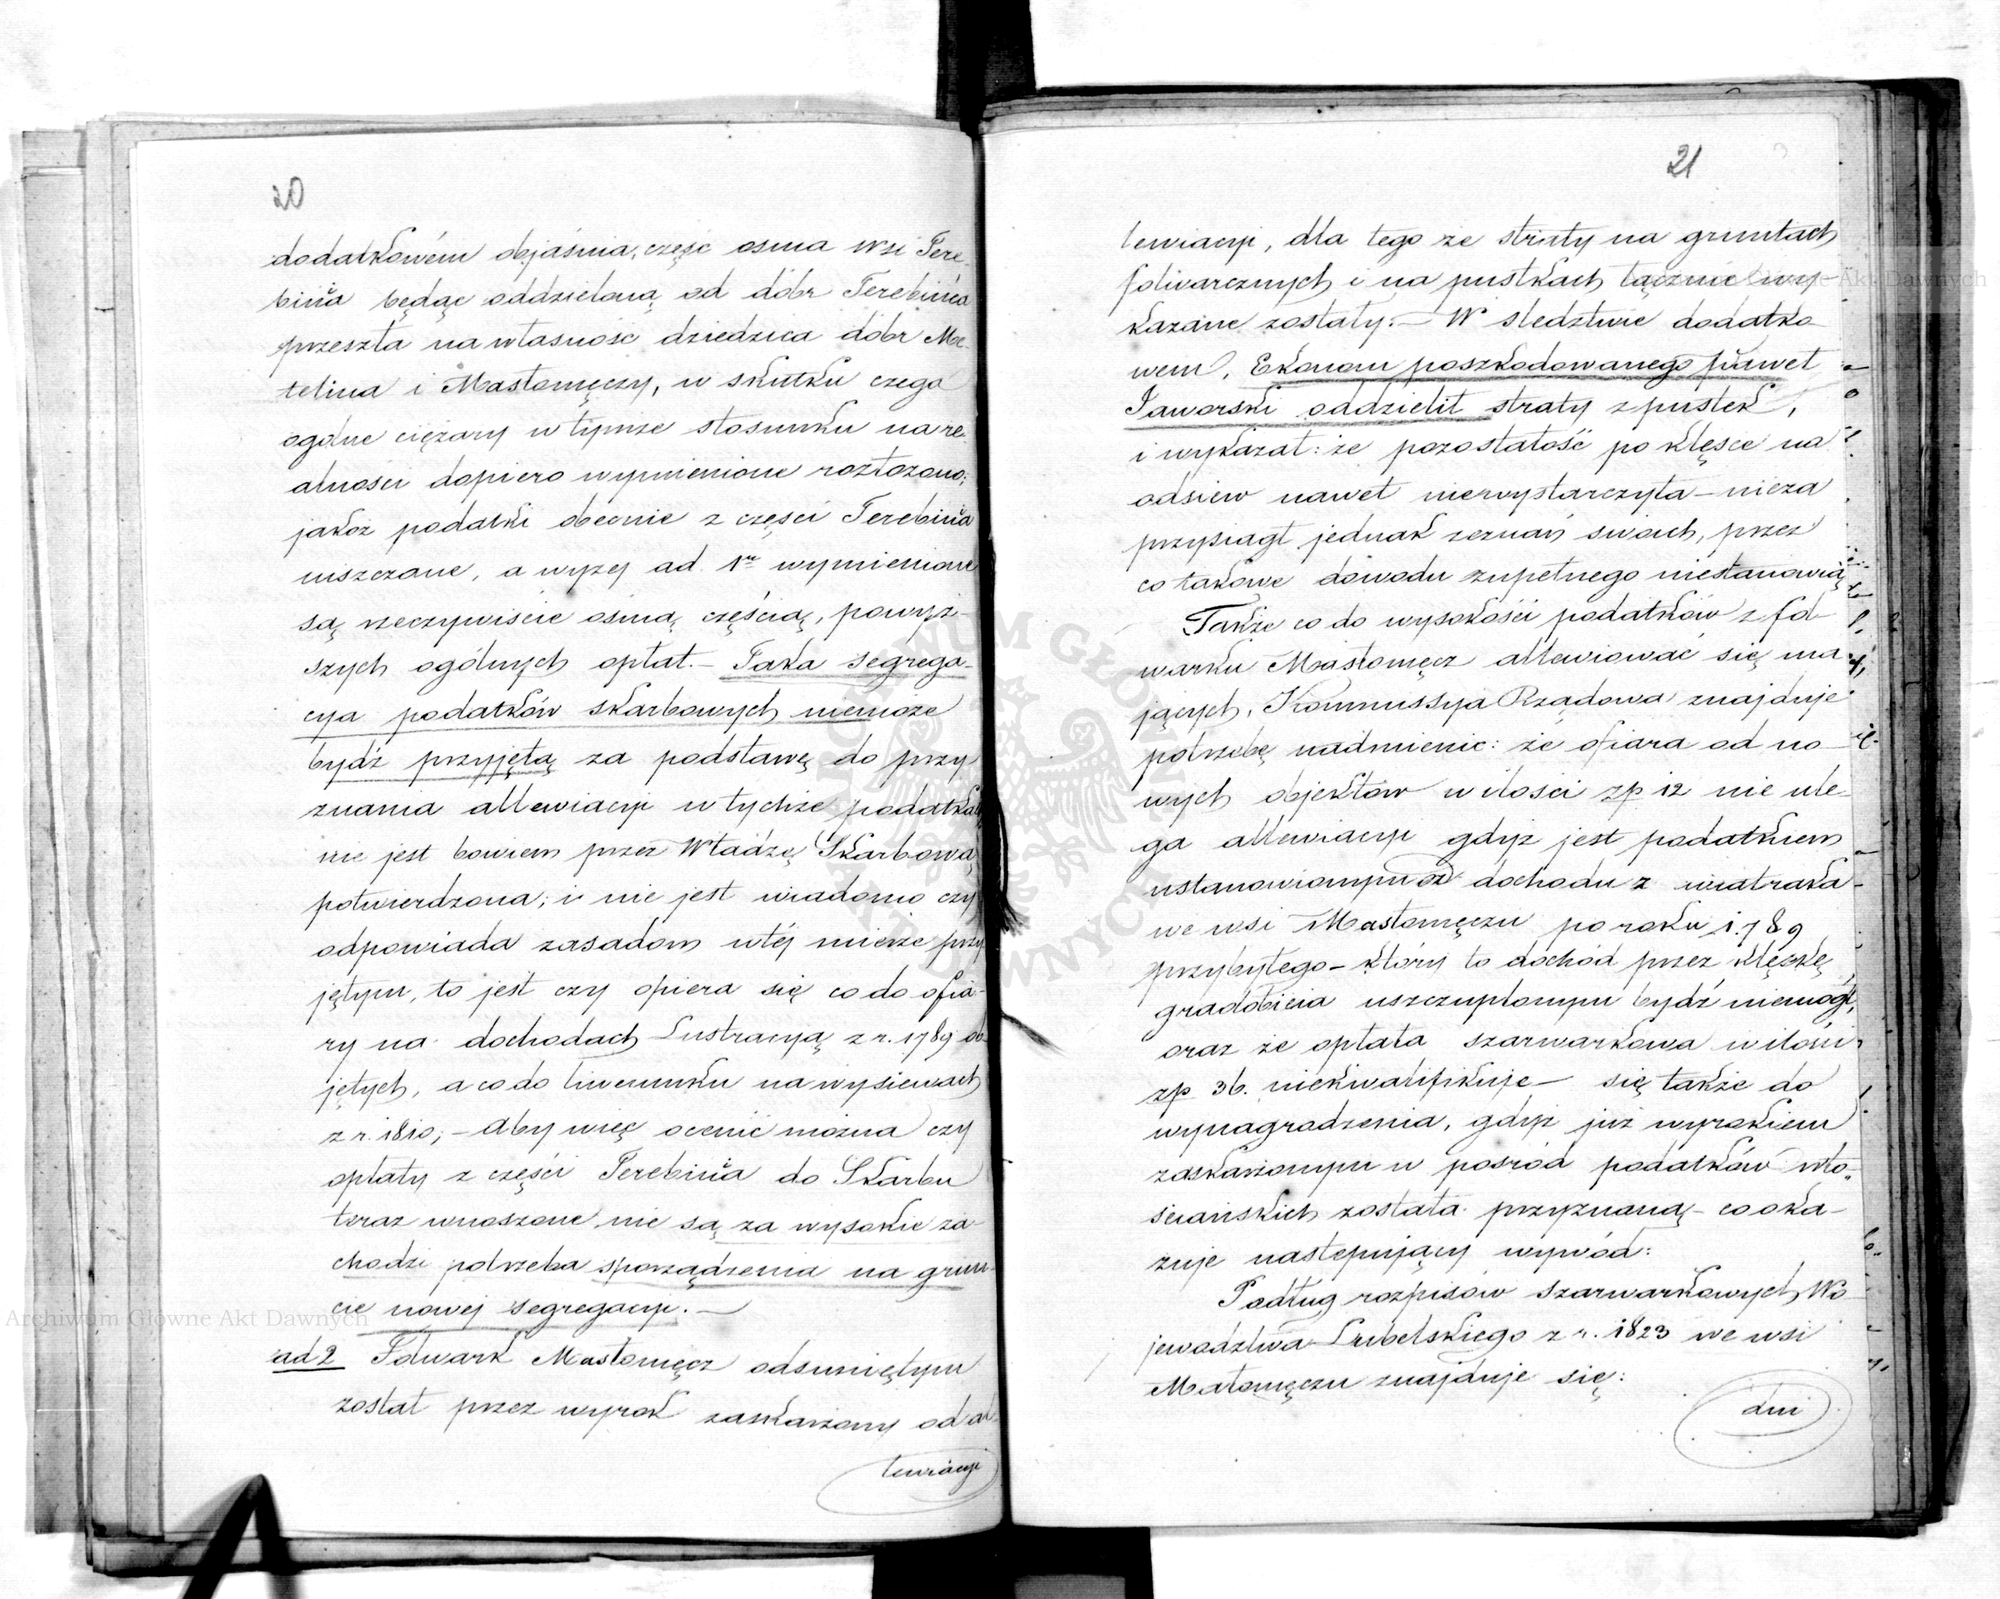 20
dodatkowém objaśnia, częśc osma wsi Tere-
bińa będąc oddzieloną od dóbr Terebińca
przeszła na własność dziedzica dóbr Me-
telina i Masłomęczy, w skutku czego
ogólne ciężary w tymże stosunku na re-
alności dopiero wymienione roztożono;
jakoż podatki obecnie z części Terebińa
uiszczane, a wyżej ad 1m wymienione
są rzeczywiście osmą częścią, powyż-
szych ogólnych opłat. – Taka segrega-
cya podatków skarbowych niemoże
bydź przyjętą za podstawę do przy
znania allewiacyi w tychże podatkach
nie jest bowiem przez Władzę Skarbową
potwierdzona; i nie jest wiadomo czy
odpowiada zasadom w téj mierze przy
jętym, to jest czy opiera się co do ofia-
ry na dochodach Lustracyą z r. 1789 ob-
jętych, a co do liwerunku na wysiewach
z r. 1810; – Aby więc ocenić można czy
opłaty z części Terebińa do Skarbu
teraz wnoszone nie są za wysokie za-
chodzi potrzeba sporządzenia na grun-
cie nowej segregacyi. –
ad 2 Folwark Masłomęcz odsuniętym
został przez wyrok zaskarżony od al-
lewiacyi
21
lewiacyi, dla tego że straty na gruntach
folwarcznych i na pustkach łącznie wy-
kazane zostały. – W śledztwie dodatko-
wem, Ekonom poszkodowanego Paweł
Jaworski oddzielił straty z pustek,
i wykazał: że pozostałość po klęsce na
odsiew nawet niewystarczyła – nieza
przysiągł jednak zeznań swoich, przez
co takowe dowodu zupełnego niestanowią
Także co do wysokości podatków z fol-
warku Masłomęcz allewiować się ma-
jących, Kommissya Rządowa znajduje
potrzebę nadmienic: że ofiara od no-
wych objektów w ilości zp 12 nie ule-
ga allewiacyi gdyż jest podatkiem
ustanowionym od dochodu z wiatraka
we wsi Masłomęczu po roku 1789
przybyłego – który to dochód przez klęskę
gradobicia uszczuplonym bydź niemógł,
oraz że opłata szarwarkowa w ilości
zp 36. niekwalifikuje – się także do
wynagrodzenia, gdyż już wyrokiem
zaskarżonym w pośród podatków wło-
ściańskich została przyznaną – co oka-
zuje następujący wywód:
Podług rozpisów szarwarkowych Wo-
jewództwa Lubelskiego z r. 1823 we wsi
Matomęczu znajduje się:
dni
Archiwum Główne Akt Dawnych